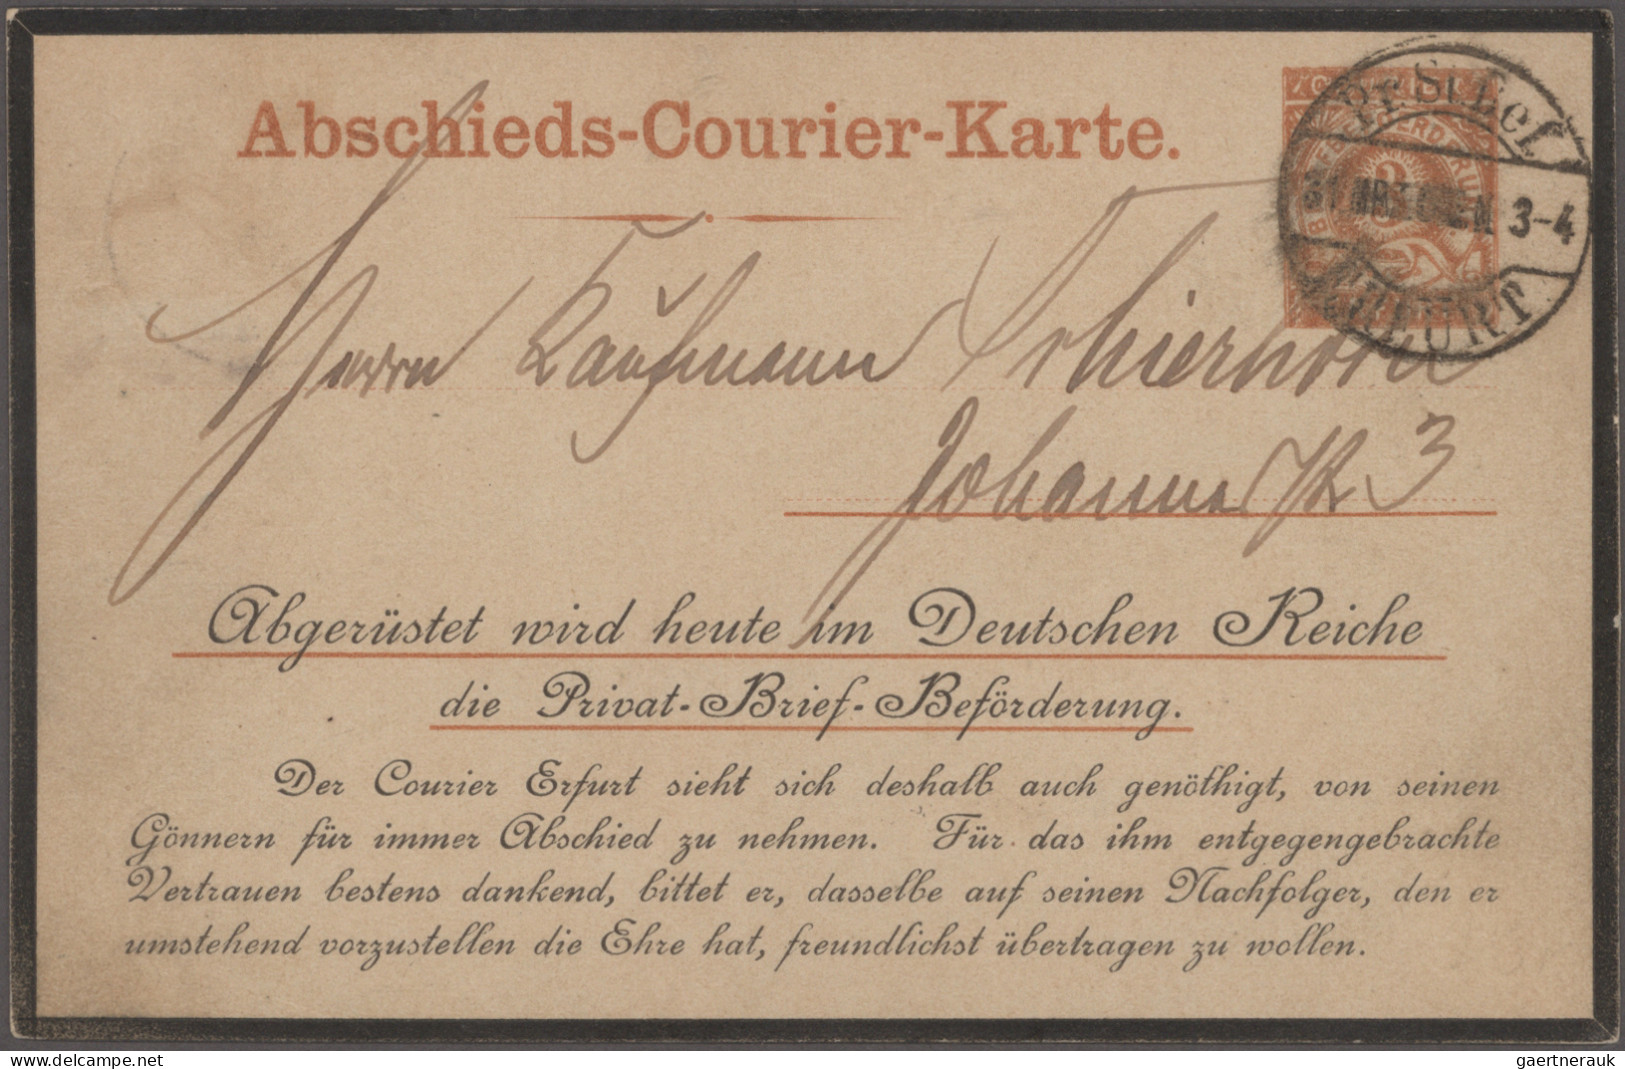 Abschieds-Courier-Karte.
3-4
ERFURT
Herrn Kaufmann Schierhorn
Johannesstr 3
Abgerüstet wird heute im Deutschen Reiche
die Privat-Brief-Beförderung.
Der Courier Erfurt sieht sich deshalb auch genöthigt, von seinen
Gönnern für immer Abschied zu nehmen. Für das ihm entgegengebrachte
Vertrauen bestens dankend, bittet er, dasselbe auf seinen Nachfolger, den er
umstehend vorzustellen die Ehre hat, freundlichst übertragen zu wollen.
www.delcampe.net
gaertnerauk